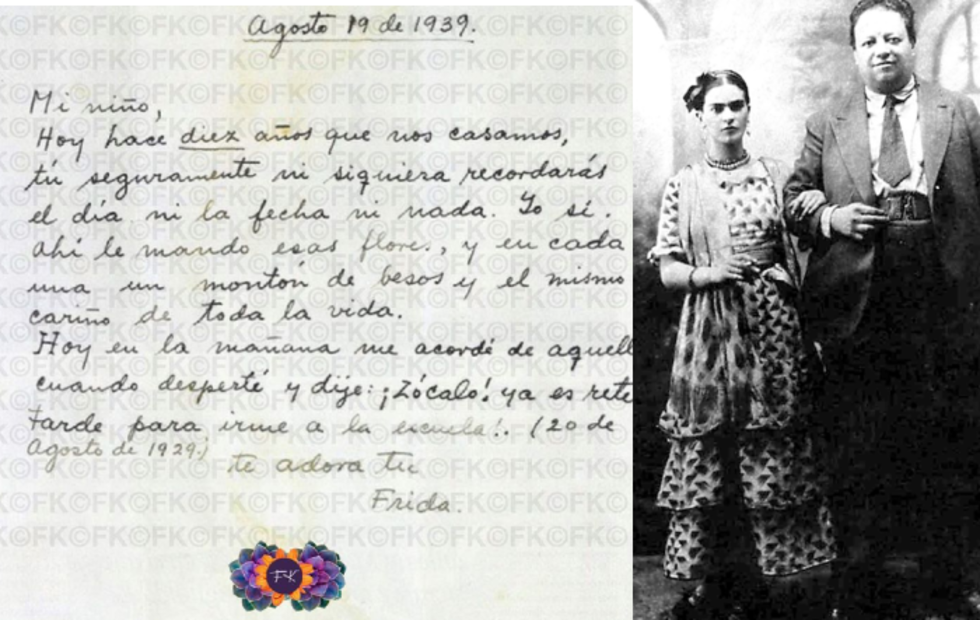 Agosto 19 de 1939.
Mi niño,
Hoy hace diez años que nos casamos,
tú seguramente ni siquiera recordarás
el día ni la fecha ni nada. Yo sí.
Ahí le mando esas flores, y en cada
una un montón de besos y el mismo
cariño de toda la vida.
Hoy en la mañana me acordé de aquell
cuando desperté y dije: ¡Zócalo! ya es rete
tarde para irme a la escuela!. (20 de
Agosto de 1929.)
te adora tu
Frida.
FK